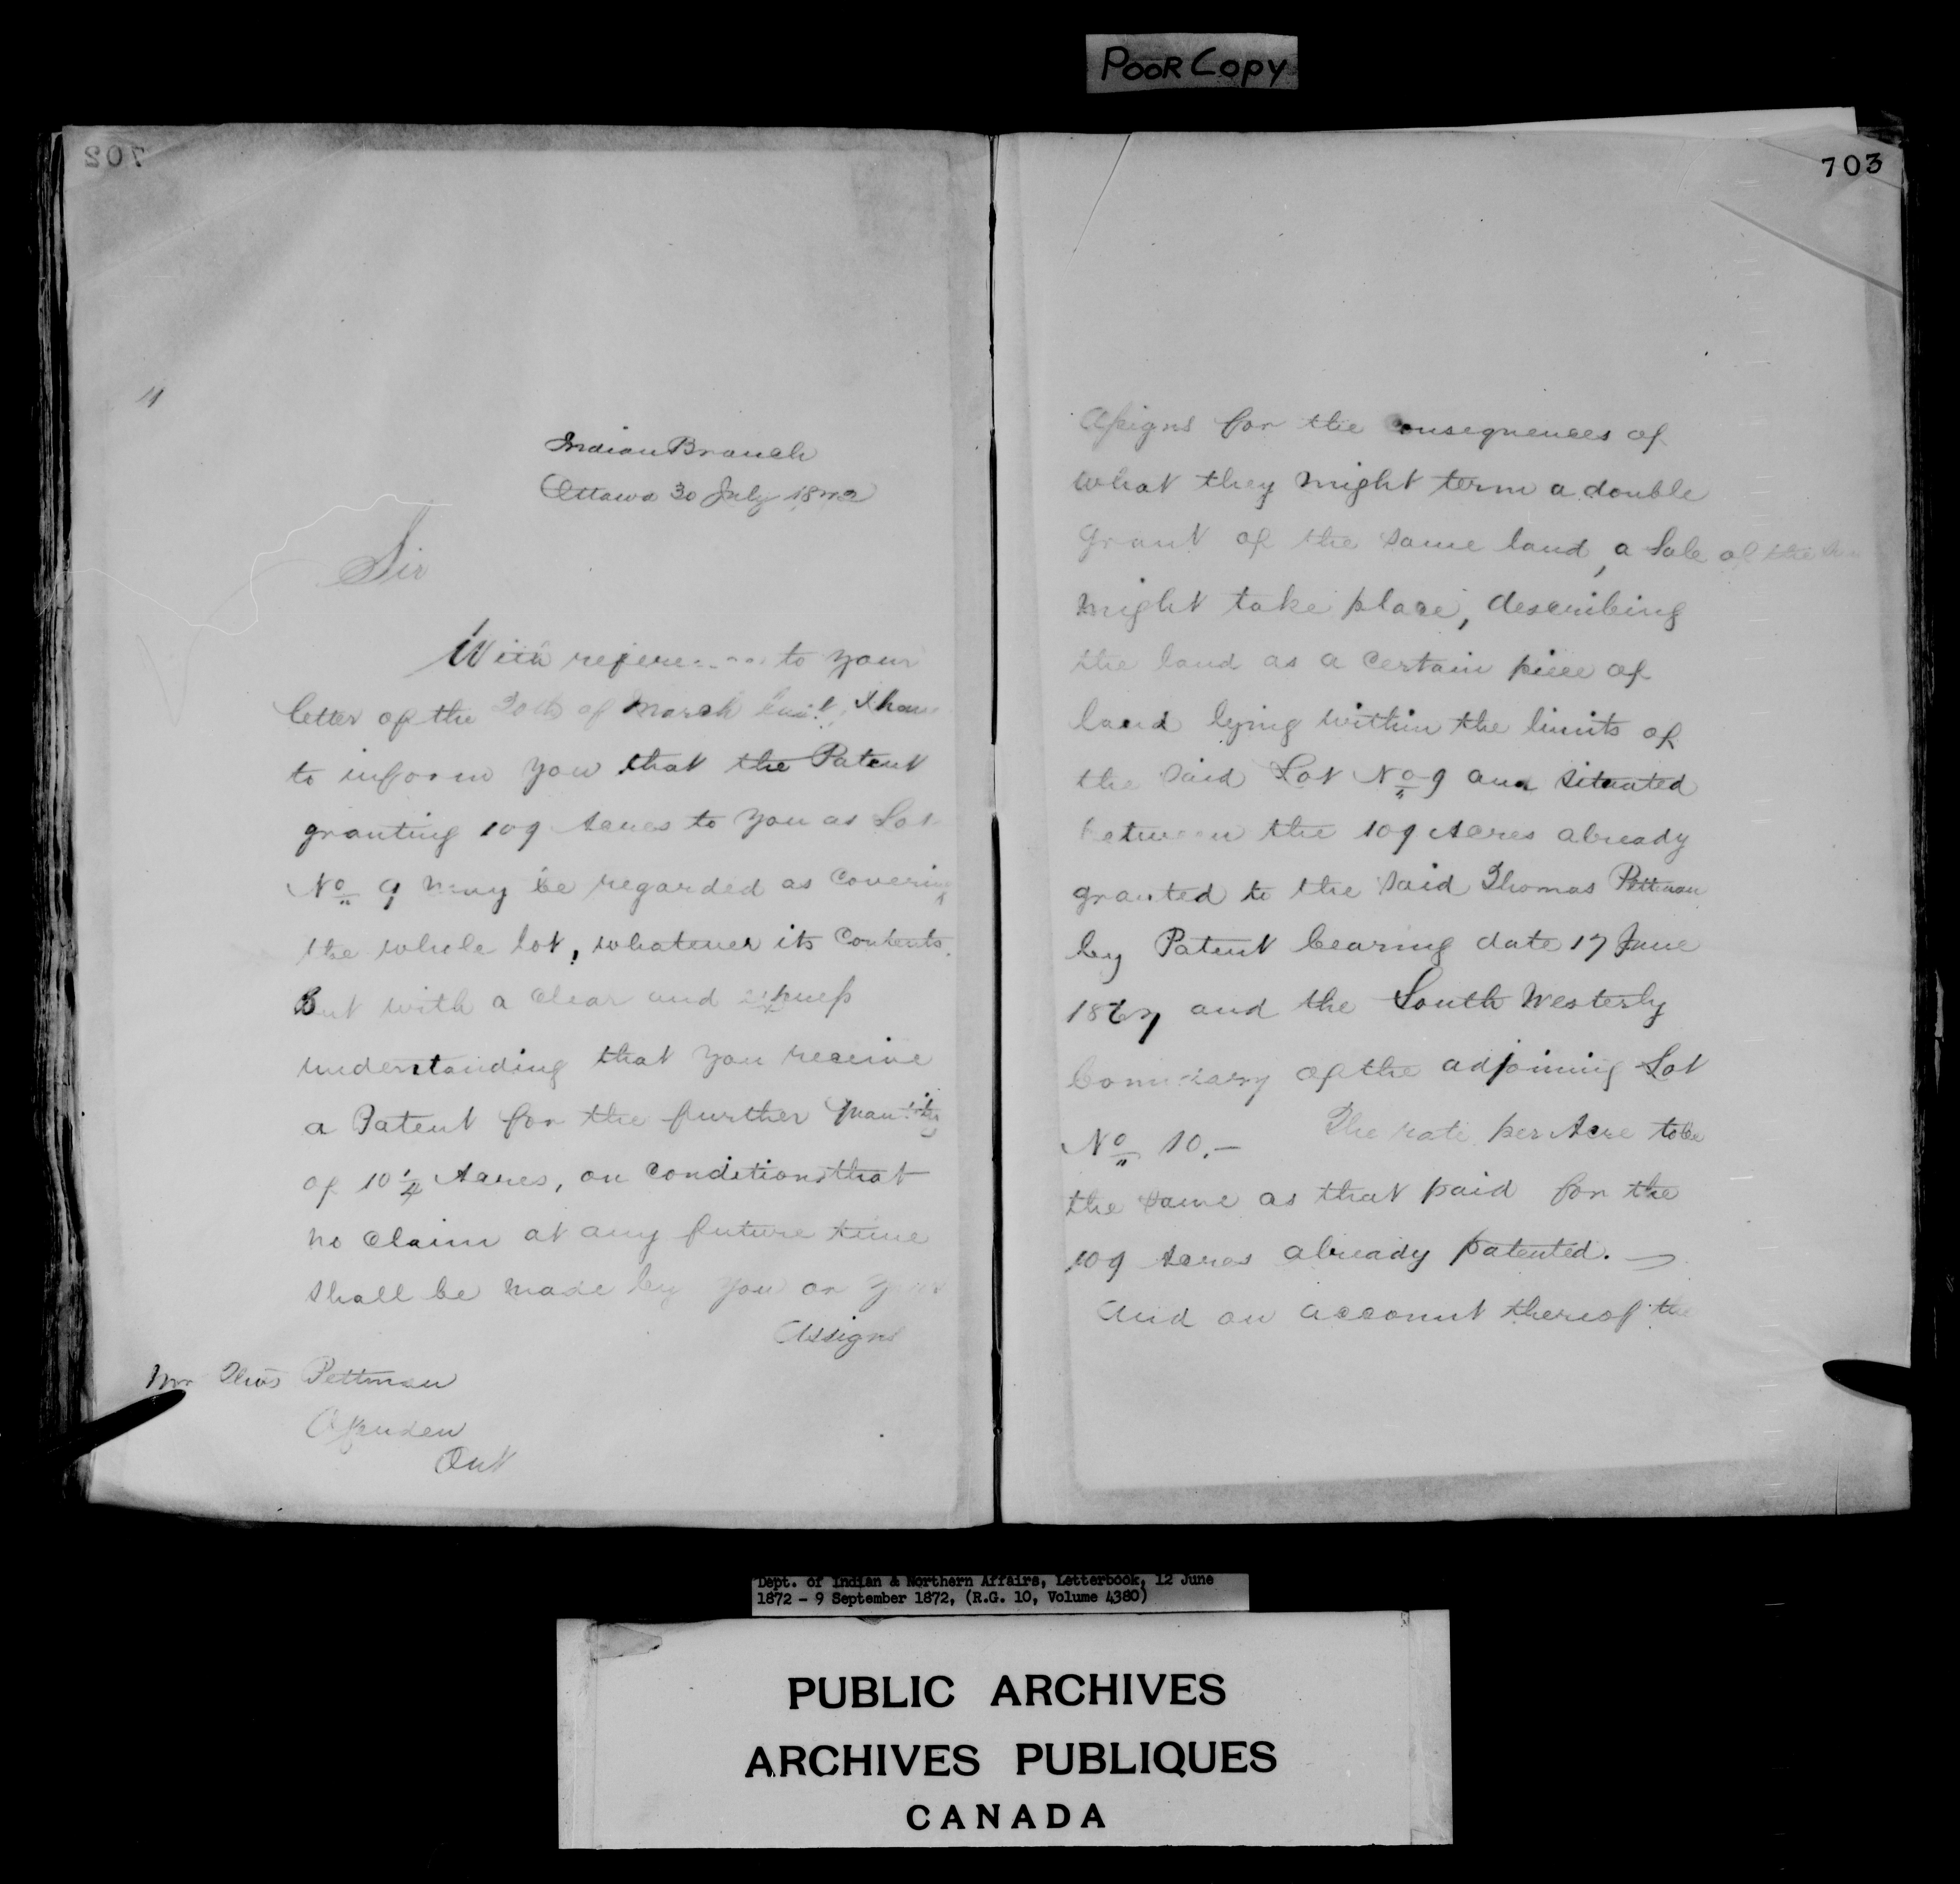 POOR COPY
702
11
Indian Branch
Ottawa 30 July 1872
Sir
With reference to your
letter of the 30th of March last, I have
to inform you that the Patent
granting 109 Acres to you as Lot
No 9 may be regarded as covering
the whole lot, whatever its Contents.
But with a clear and express
understanding that you receive
a Patent for the further quantity
of 10 1/4 Acres, on condition that
no claim at any future time
shall be made by you or your
Assigns
Mr Thos Pettman
Ont
703
Assigns for the consequences of
what they might term a double
grant of the same land, a Sale of the
might take place, describing
the land as a certain piece of
land lying within the limits of
the said Lot No 9 and situated
between the 109 Acres already
granted to the said Thomas Pettman
by Patent bearing date 17 June
1867 and the South Westerly
boundary of the adjoining Lot
No 10.— The rate per Acre to be
the same as that paid for the
109 Acres already patented.—
And on account thereof the
Dept. of Indian & Northern Affairs, Letterbook, 12 June
1872 - 9 September 1872, (R.G. 10, Volume 4380)
PUBLIC ARCHIVES
ARCHIVES PUBLIQUES
CANADA